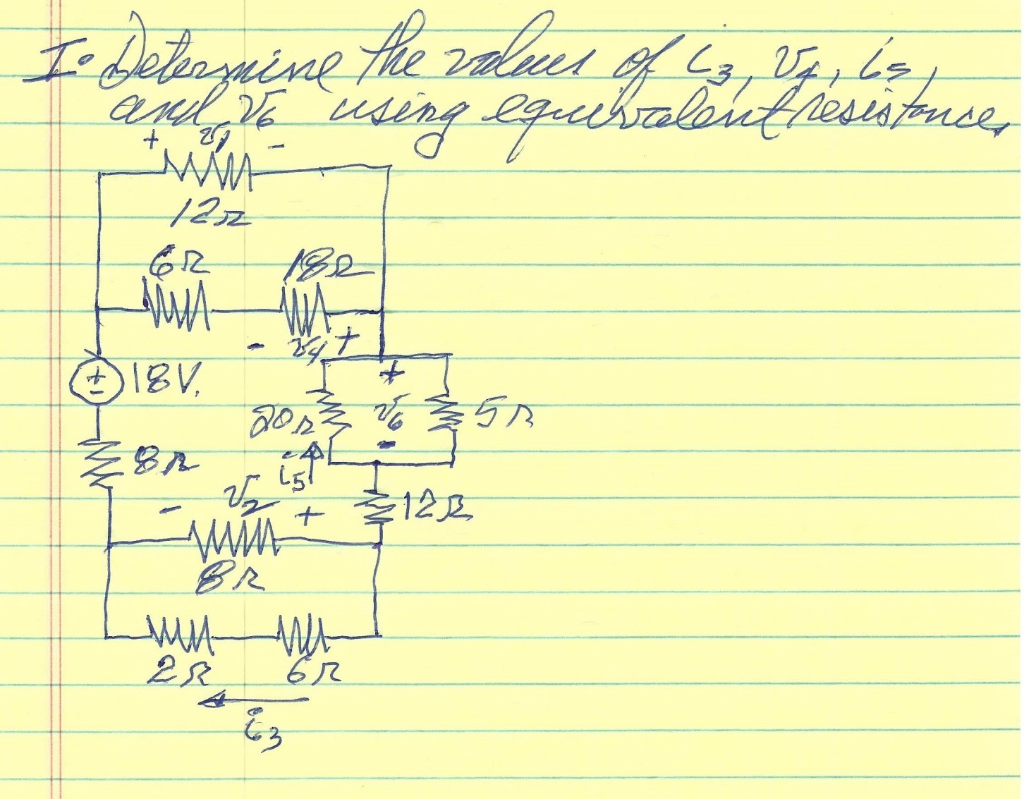 I. Determine the values of i3, v4, i5,
and v6 using equivalent resistance.
+ v1 -
12Ω
6Ω 18Ω
- v4 +
± 18V.
+
20Ω v6 5Ω
-
8Ω
i5
- v2 +
12Ω
8Ω
2Ω 6Ω
i3